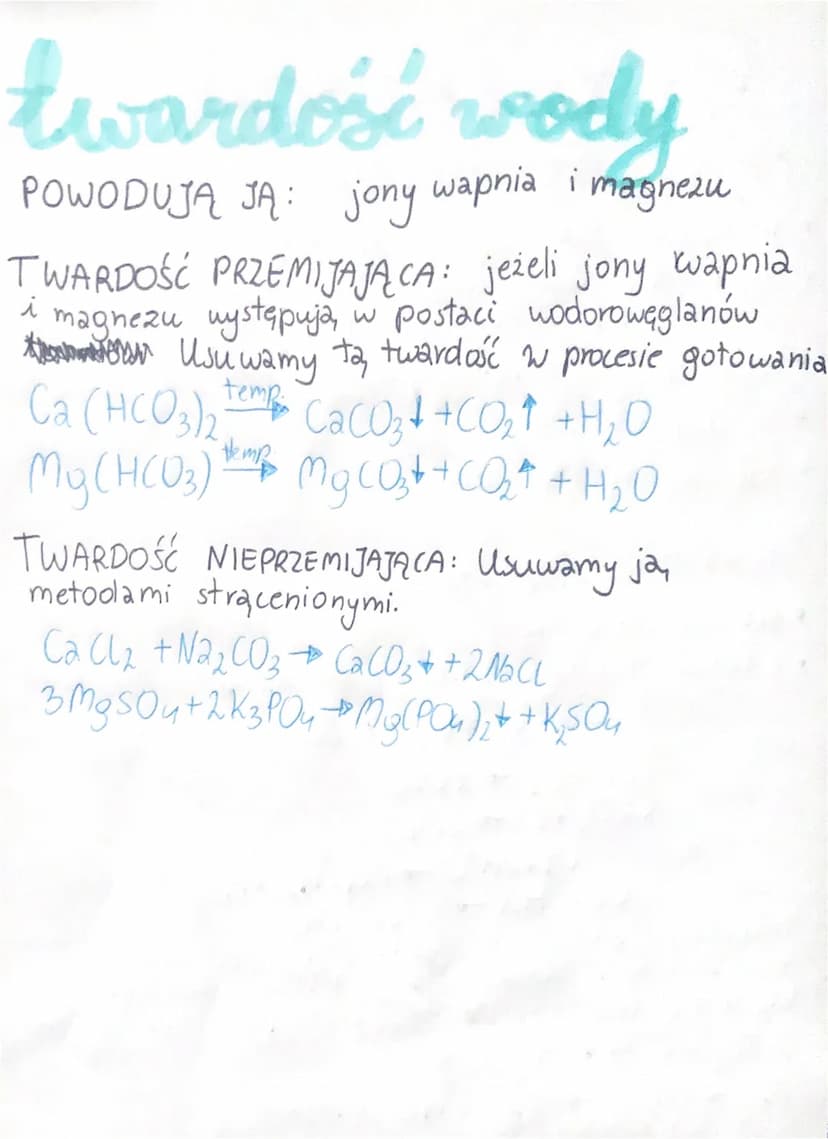 twardość wody
POWODUJĄ JĄ: jony wapnia i magnezu
TWARDOŚĆ PRZEMIJAJĄCA: jeżeli jony wapnia
i magnezu występują w postaci wodorowęglanów
Usuwamy tą twardość w procesie gotowania
Ca(HCO₃)₂ —temp.→ CaCO₃↓ + CO₂↑ + H₂O
Mg(HCO₃) —temp→ MgCO₃↓ + CO₂↑ + H₂O
TWARDOŚĆ NIEPRZEMIJAJĄCA: Usuwamy ją
metodami strącenionymi.
CaCl₂ + Na₂CO₃ → CaCO₃↓ + 2NaCl
3MgSO₄ + 2K₃PO₄ → Mg(PO₄)₂↓ + K₂SO₄